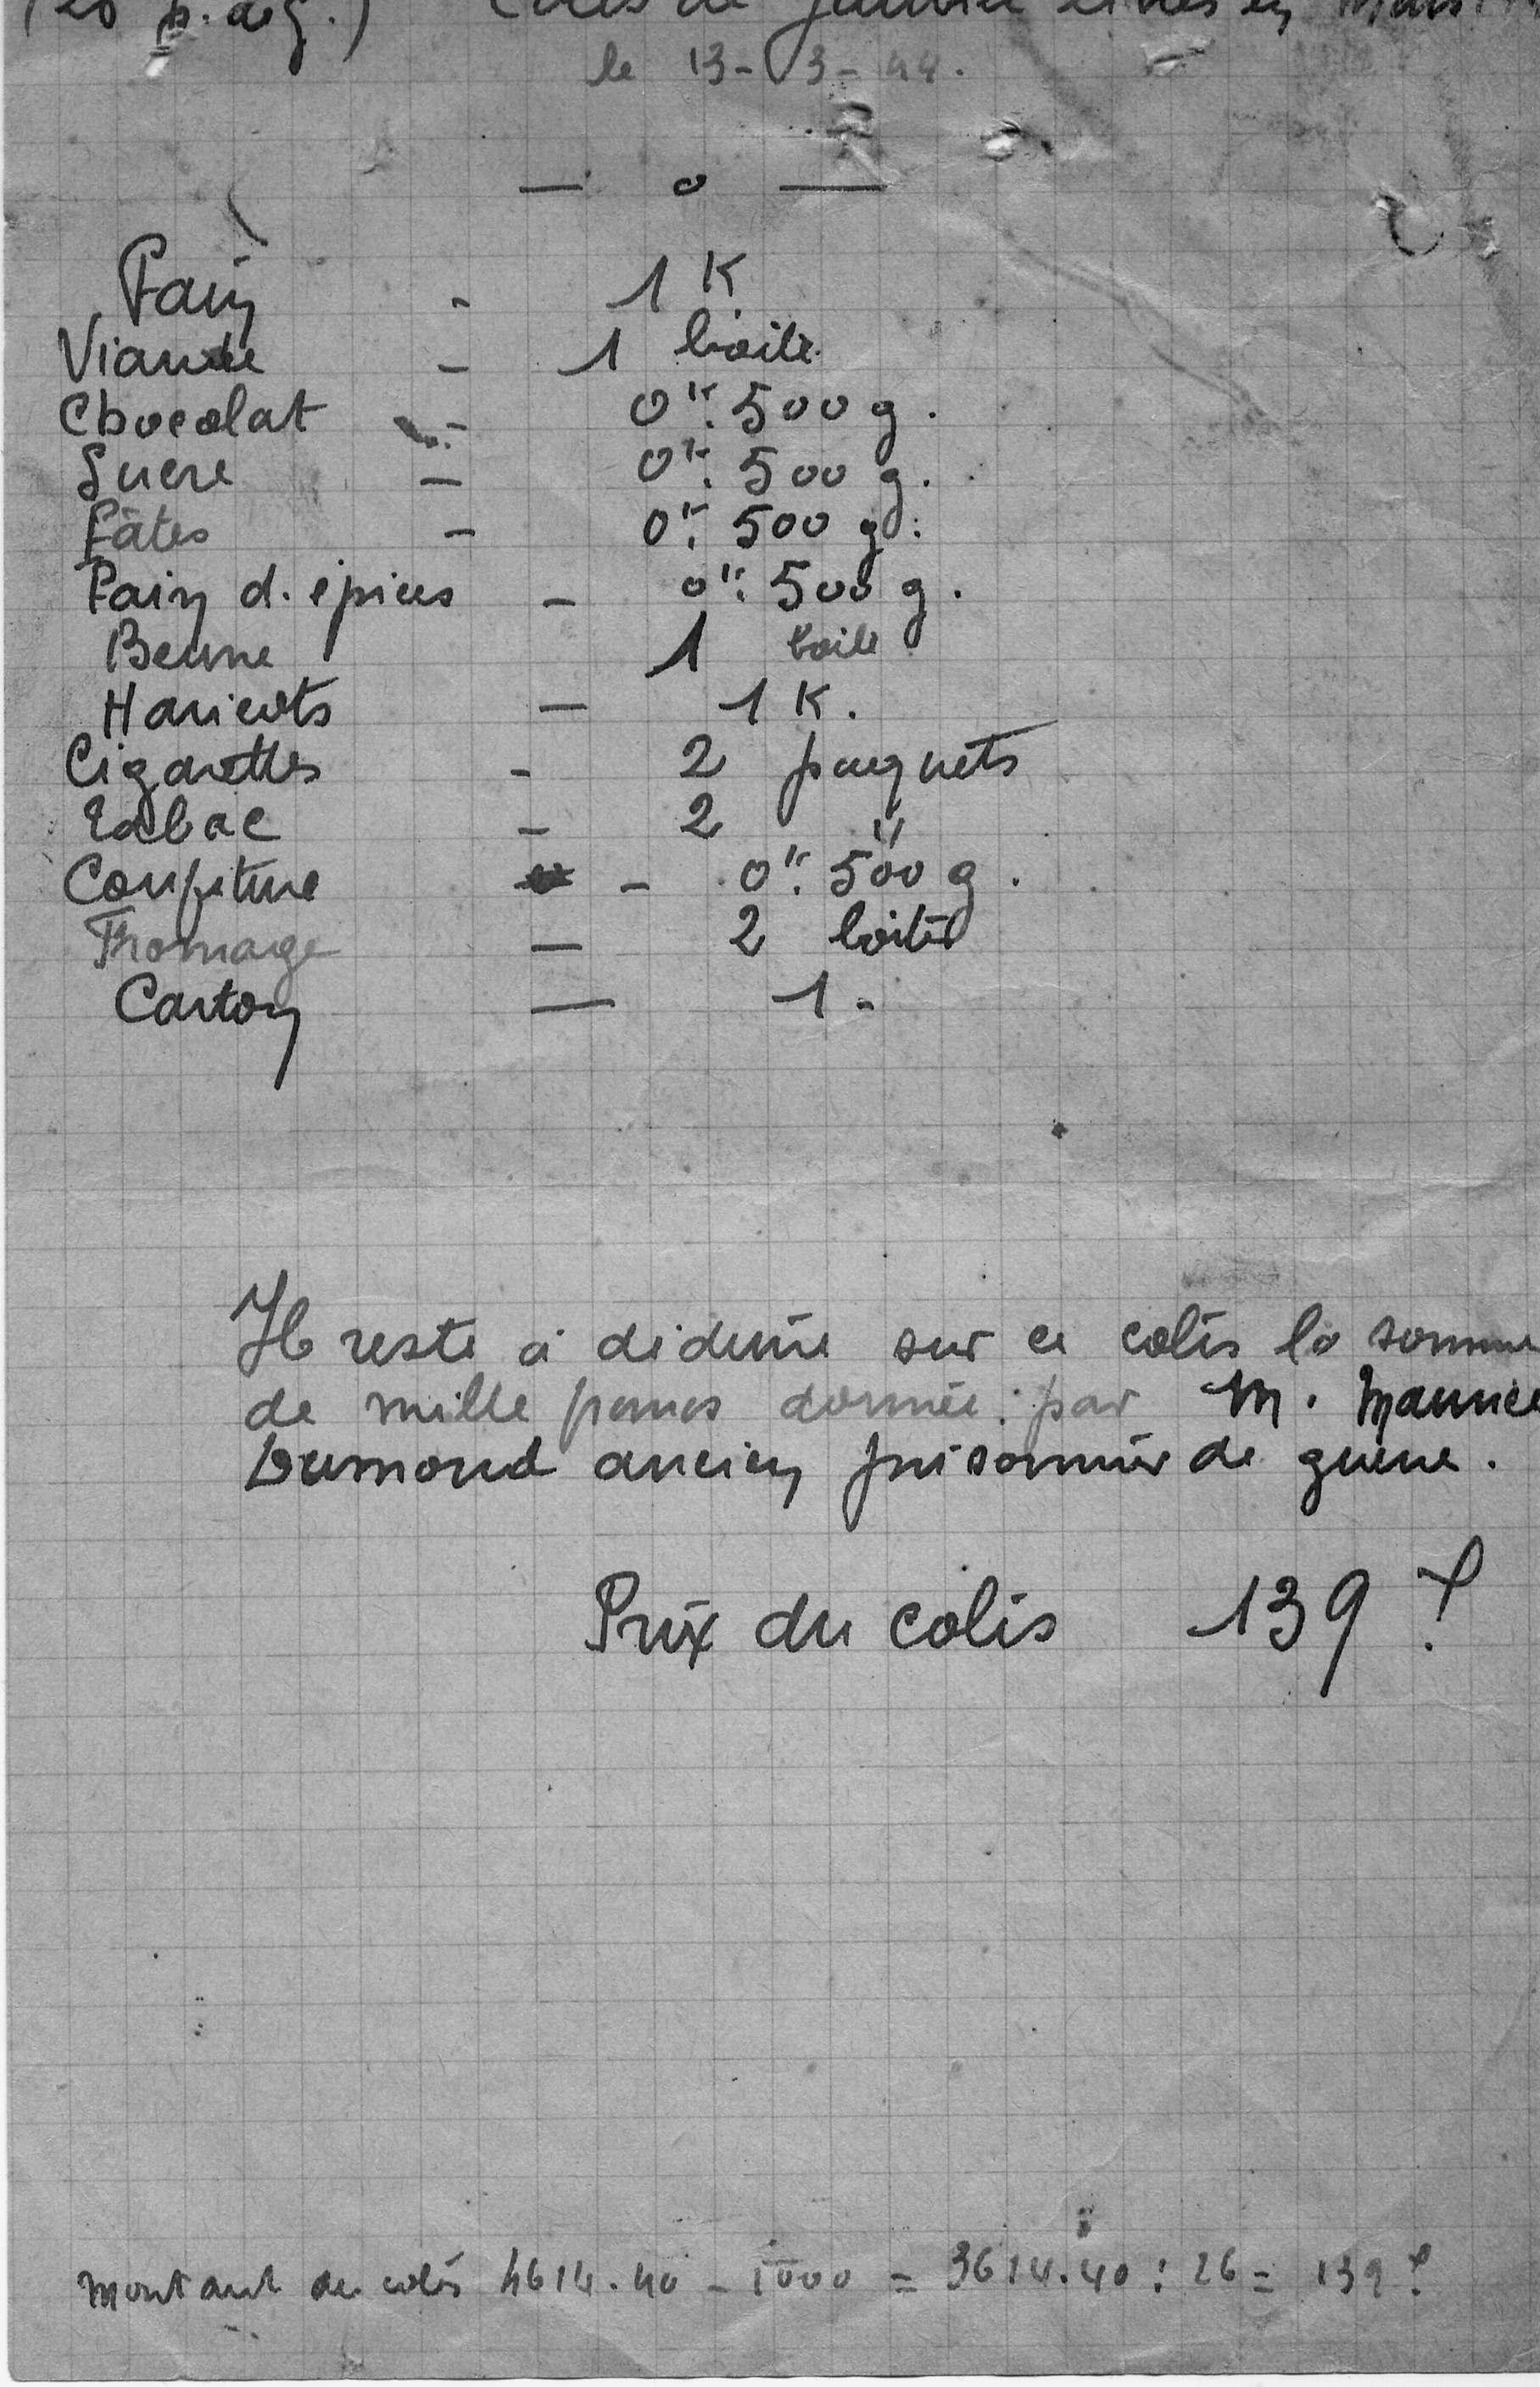 Colis de
le 13-3-44.
— o —
Pain - 1 K
Viande - 1 boite.
Chocolat - 0k. 500 g.
Sucre - 0k. 500 g.
Pâtes - 0k. 500 g.
Pain d. épices - 0k. 500 g.
Beurre 1 boite
Haricots - 1 K.
Cigarettes - 2 paquets
Tabac - 2 "
Confiture - 0k. 500 g.
Fromage - 2 boites
Carton — 1 -
Il reste à déduire sur ce colis la somme
de mille francs donnée par M. Maurice
Dumond ancien prisonnier de guerre.
Prix du colis 139 f.
Montant du colis 4614.40 - 1000 = 3614.40 : 26 = 139 f.